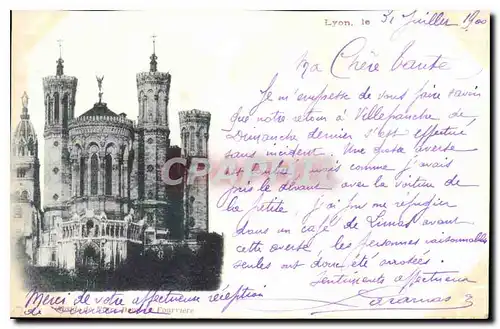 Lyon, le 31 Juillet 1900
Ma Chère Tante
Je m'empresse de vous faire savoir
que notre retour à Villefranche de
Dimanche dernier s'est effectué
sans incident. Une averse
mais comme j'avais
pris le devant avec la voiture de
la petite j'ai pu me réfugier
dans un café de Limas avant
cette averse, les personnes raisonnables
seules ont donc été arrosées.
Sentiments affectueux
Merci de votre affectueuse réception
de Dimanche
Fourvière